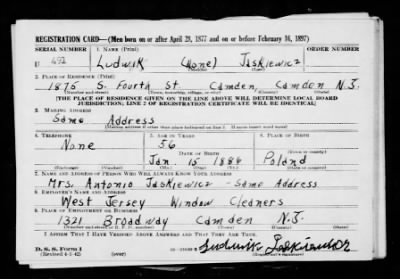 REGISTRATION CARD—(Men born on or after April 28, 1877 and on or before February 16, 1897)
SERIAL NUMBER 1. NAME (Print) ORDER NUMBER
U 492 Ludwik (None) Jaskiewicz
2. PLACE OF RESIDENCE (Print)
1875 S. Fourth St. Camden, Camden N.J.
(Number and street) (Town, township, village, or city) (County) (State)
[THE PLACE OF RESIDENCE GIVEN ON THE LINE ABOVE WILL DETERMINE LOCAL BOARD
JURISDICTION; LINE 2 OF REGISTRATION CERTIFICATE WILL BE IDENTICAL]
3. MAILING ADDRESS
Same Address
[Mailing address if other than place indicated on line 2. If same insert word same]
4. TELEPHONE 5. AGE IN YEARS 6. PLACE OF BIRTH
None 56
DATE OF BIRTH
Jan 15 1886 Poland
7. NAME AND ADDRESS OF PERSON WHO WILL ALWAYS KNOW YOUR ADDRESS
Mrs. Antonio Jaskiewicz - Same Address
8. EMPLOYER'S NAME AND ADDRESS
West Jersey Window Cleaners
9. PLACE OF EMPLOYMENT OR BUSINESS
1321 Broadway Camden N.J.
I AFFIRM THAT I HAVE VERIFIED ABOVE ANSWERS AND THAT THEY ARE TRUE.
D. S. S. Form 1
(Revised 4-1-42) (over) Ludwik Jaskiewicz